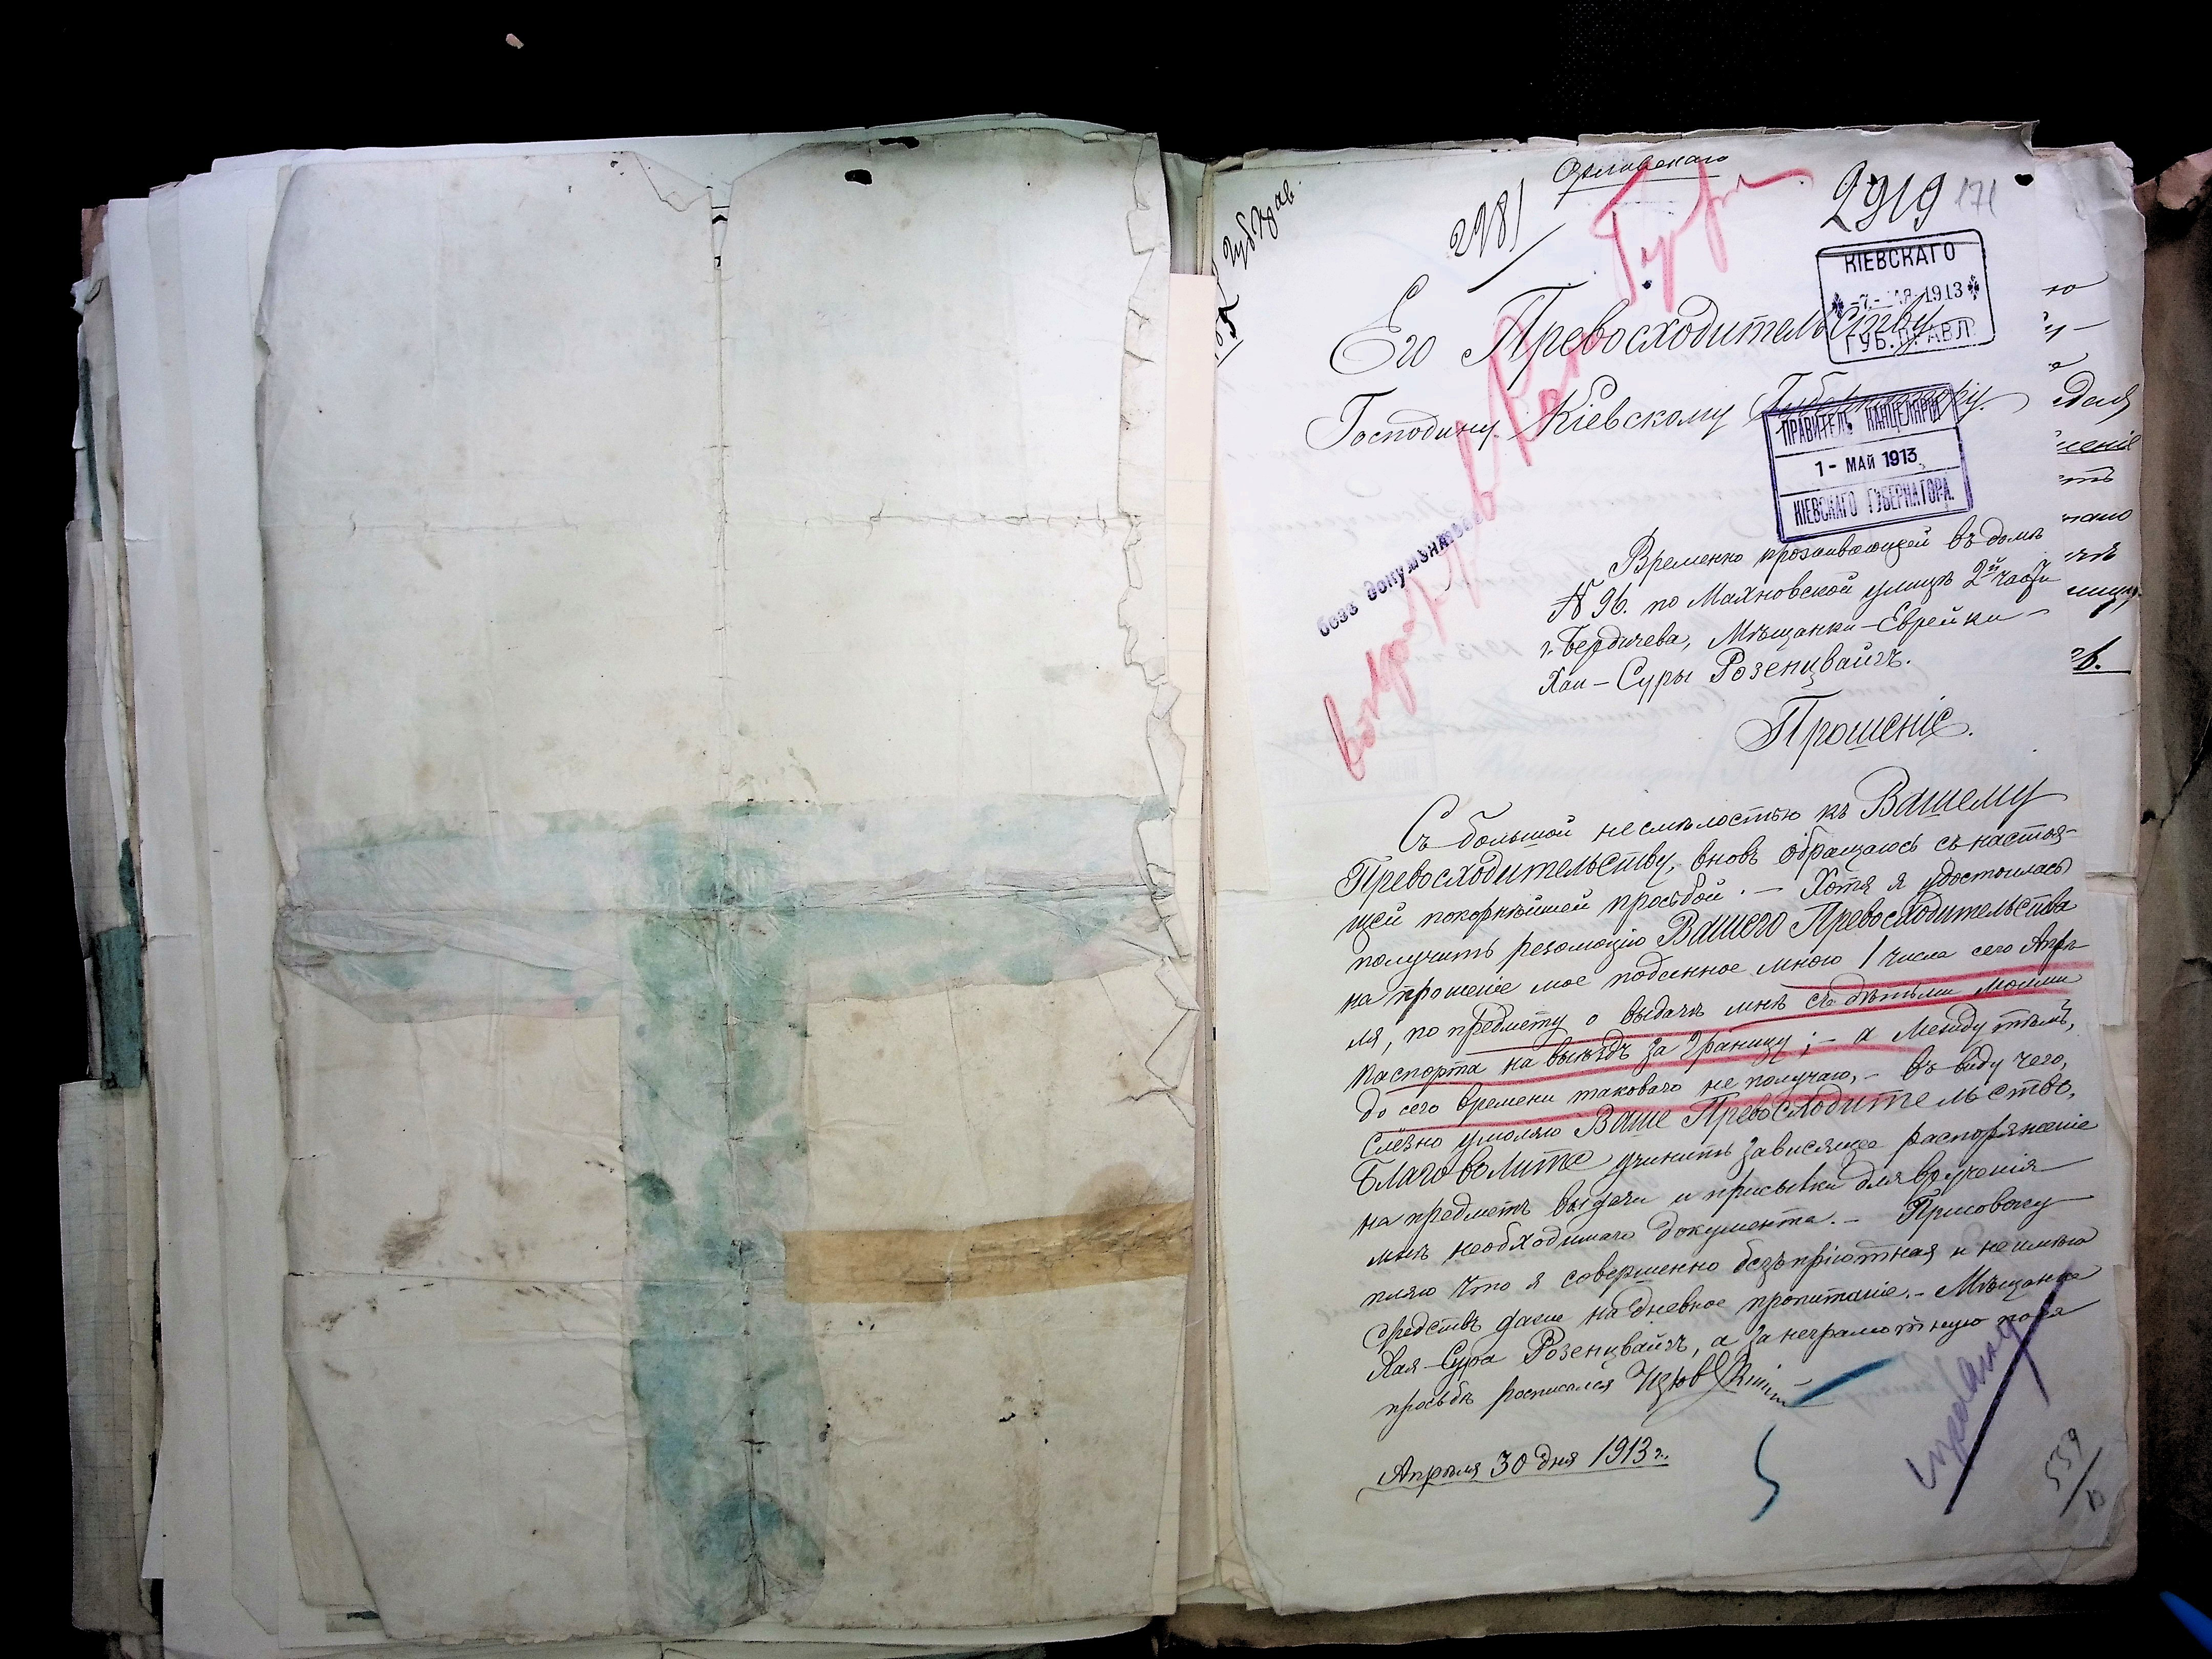 2981
2919
171
КІЕВСКАГО
1913
ГУБ. ПРАВЛ.
Его Превосходительству
Господину Кіевскому Губернатору.
ПРАВИТЕЛЬ КАНЦЕЛЯРІИ
1 - МАЙ 1913
КІЕВСКАГО ГУБЕРНАТОРА.
безъ документовъ
Временно проживающей въ домѣ
№ 96. по Махновской улицѣ 2й части
г. Бердичева, Мѣщанки-Еврейки
Хаи-Суры Розенцвайгъ.
Прошеніе.
Съ большой несмѣлостью къ Вашему
Превосходительству, вновь обращаюсь съ настоя-
щей покорнѣйшей просьбой. — Хотя я удостоилась
получить резолюцію Вашего Превосходительства
на прошеніе мое поданное мною 1 числа сего Апрѣ-
ля, по предмету о выдачѣ мнѣ съ дѣтьми моими
паспорта на выѣздъ за границу; — а между тѣмъ,
до сего времени таковаго не получаю, — въ виду чего,
слезно умоляю Ваше Превосходительство,
Благоволите учинить зависящее распоряженіе
на предметъ выдачи и присылки для врученія
мнѣ необходимаго документа. — Присовоку
пляю что я совершенно безъпріютная и неимѣю
средствъ даже на дневное пропитаніе. — Мѣщанка
Хая-Сура Розенцвайгъ, а за неграмотную по ея
просьбѣ росписался
Апрѣля 30 дня 1913 г.
559